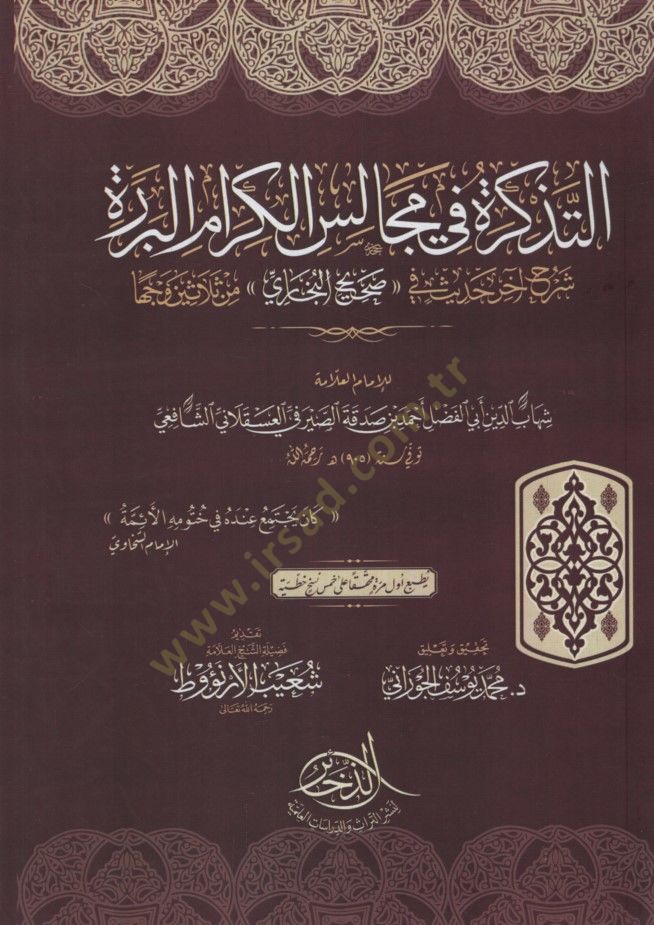 التَّذْكِرَةُ فِي مَجَالِسِ الكِرَامِ البَرَرَةِ
شَرْحُ آخِرِ حَدِيثٍ فِي « صَحِيحِ البُخَارِيِّ » مِنْ ثَلَاثِينَ وَجْهًا
للإمام العلّامة
شِهَابِ الدِّينِ أَبِي الفَضْلِ أَحْمَدَ بْنِ صَدَقَةَ الصَّيْرَفِيِّ العَسْقَلَانِيِّ الشَّافِعِيِّ
توفي سنة (٩٠٥) هـ رَحِمَهُ اللهُ
« كَانَ يَجْتَمِعُ عِنْدَهُ فِي خُتُومِهِ الأَئِمَّةُ »
الإمام السخاوي
يطبع أول مرة محققًا على خمس نسخ خطية
تحقيق وتعليق
د. مُحَمَّد يُوسُف الجُورَانِيّ
تقديم
فضيلة الشيخ العلامة
شُعَيْب الأَرْنَؤُوط
رحمه الله تعالى
الذَّخَائِر
لنشر التراث والدراسات العلمية
www.irsad.com.tr